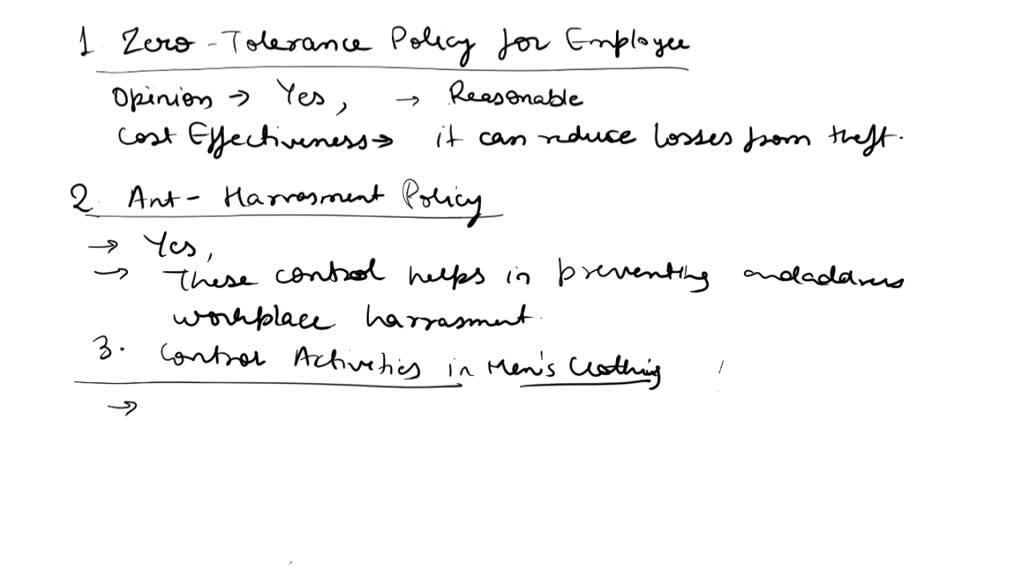 1 Zero-Tolerance Policy for Employee
Opinion → Yes, → Reasonable
Cost Effectiveness → it can reduce losses from theft.
2 Ant- Harrasment Policy
→ Yes,
→ These control helps in preventing and address
workplace harrasment.
3. Control Activities in Men's Clothing
→